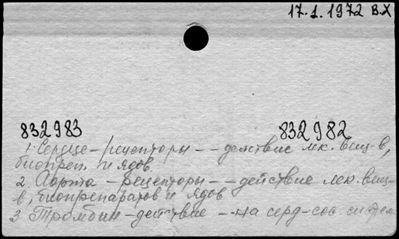 17.1.1972 ВХ
832983 832982
1. Сердце - рецепторы -- действие лек. вещ-в,
биопреп. и ядов
2 Аорта - рецепторы -- действие лек. вещ-
в, биопрепаратов и ядов
3 Тромбин - действие -- на серд-сос. систем